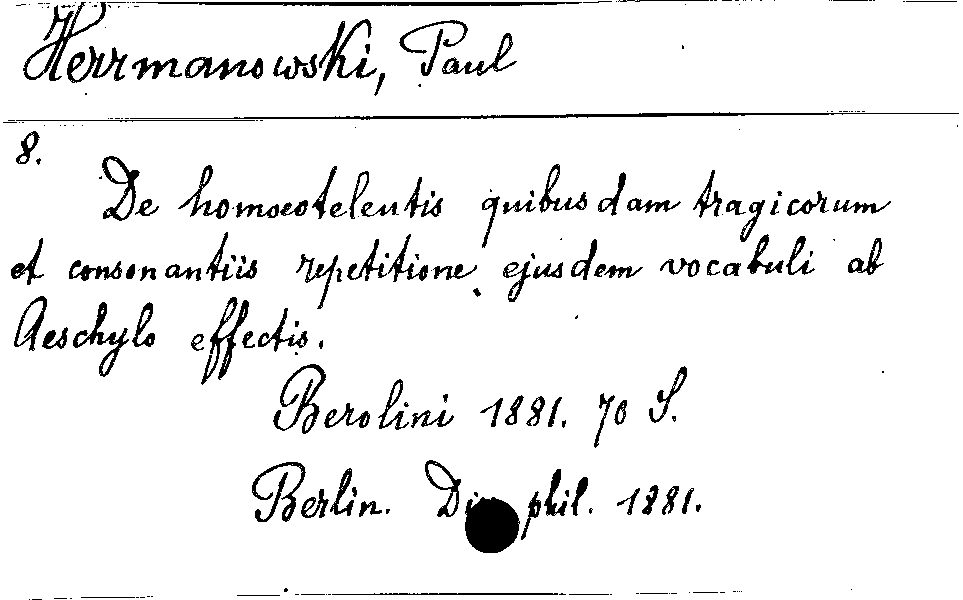 Herrmanowski, Paul
8.
De homoeoteleutis quibusdam tragicorum
et consonantiis repetitione ejusdem vocabuli ab
Aeschylo effectis.
Berolini 1881. 70 S.
Berlin. phil. 1881.